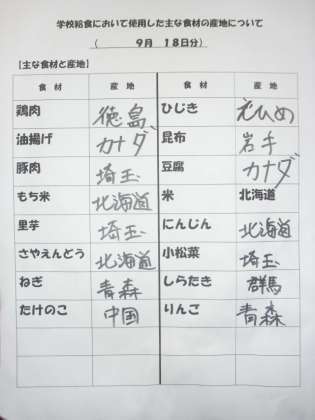 学校給食において使用した主な食材の産地について
( 9月 18日分)
【主な食材と産地】
食材 産地 食材 産地
鶏肉 徳島 ひじき えひめ
油揚げ カナダ 昆布 岩手
豚肉 埼玉 豆腐 カナダ
もち米 北海道 米 北海道
里芋 埼玉 にんじん 北海道
さやえんどう 北海道 小松菜 埼玉
ねぎ 青森 しらたき 群馬
たけのこ 中国 りんご 青森